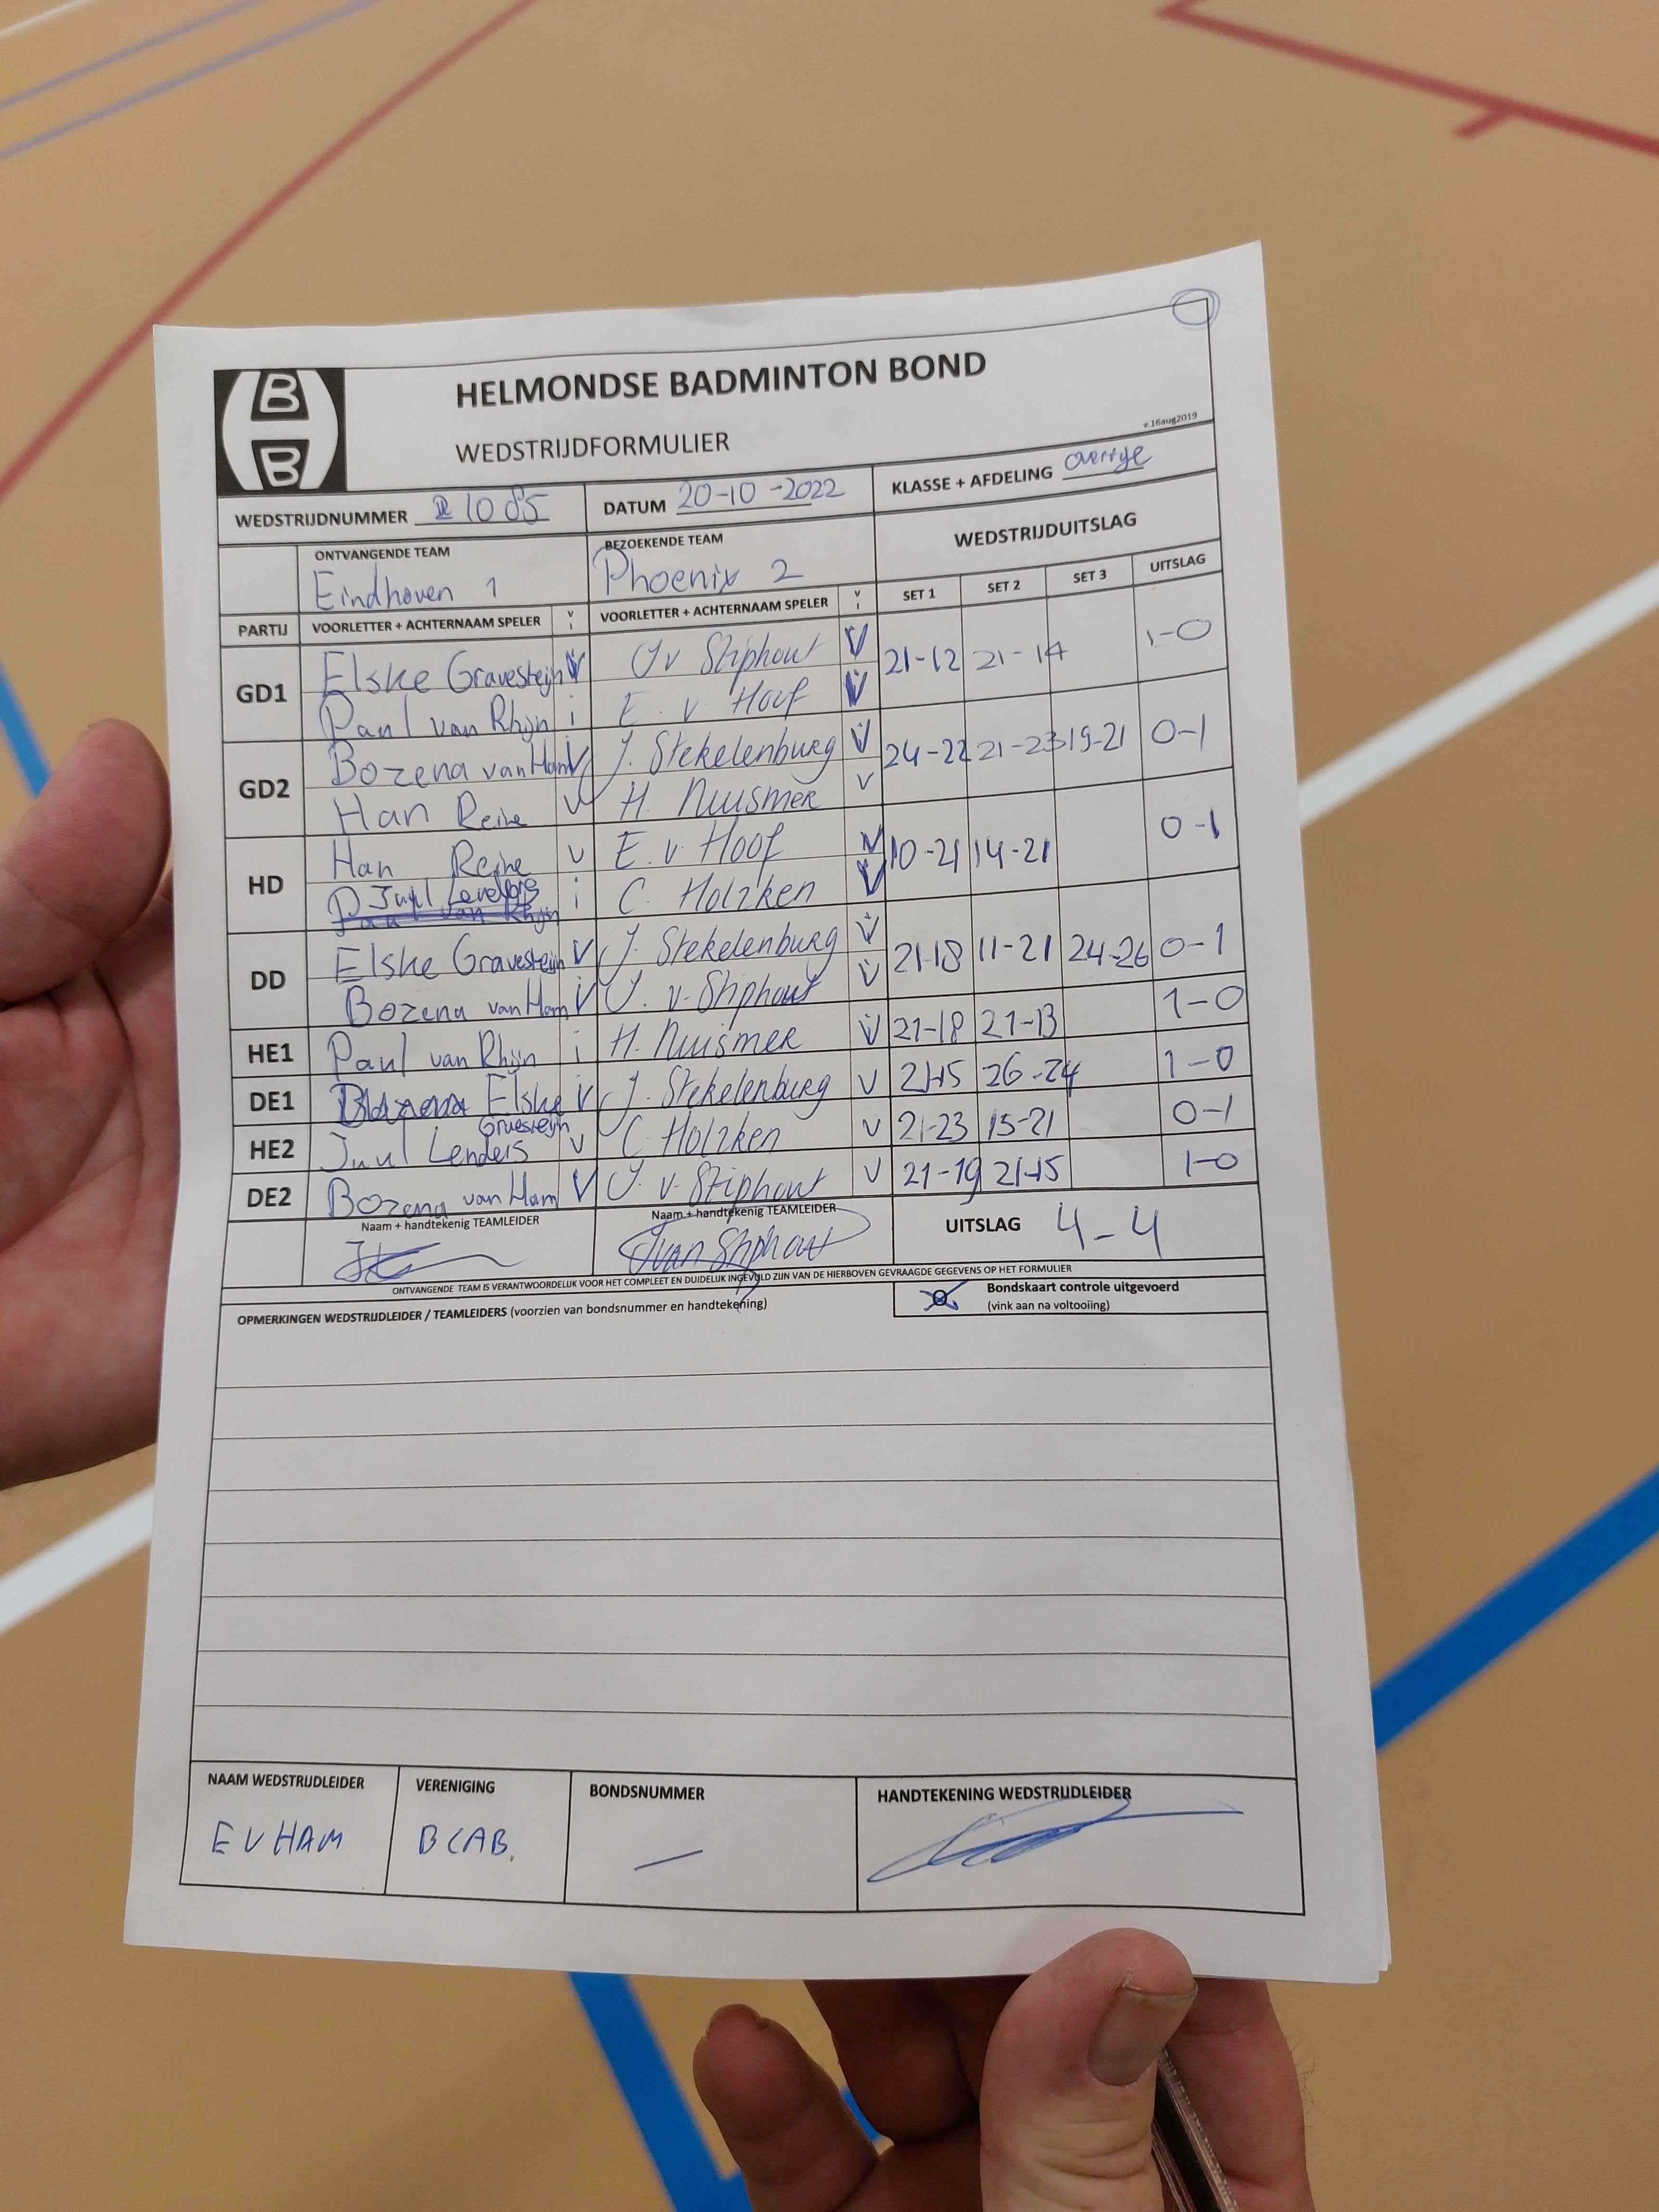 B
B
HELMONDSE BADMINTON BOND
WEDSTRIJDFORMULIER
v.16aug2019
WEDSTRIJDNUMMER 1085
DATUM 20-10-2022
KLASSE + AFDELING
ONTVANGENDE TEAM
Eindhoven 1
BEZOEKENDE TEAM
Phoenix 2
WEDSTRIJDUITSLAG
PARTIJ VOORLETTER + ACHTERNAAM SPELER V I VOORLETTER + ACHTERNAAM SPELER V I SET 1 SET 2 SET 3 UITSLAG
GD1 Elske Gravesteijn V J v Stiphout V 21-12 21-14 1-0
Paul van Rhijn i E. v. Hoof V
GD2 Bozena van Ham V J. Stekelenburg V 24-22 21-23 19-21 0-1
Han Reihe V H. Nuismer V
HD Han Reihe V E. v. Hoof V 10-21 14-21 0-1
Juul i C. Holzken V
DD Elske Gravesteijn V J. Stekelenburg V 21-18 11-21 24-26 0-1
Bozena van Ham V J. v. Stiphout V
HE1 Paul van Rhijn i H. Nuismer V 21-18 21-13 1-0
DE1 Elske V J. Stekelenburg V 21-15 26-24 1-0
HE2 Juul Lenders V C. Holzken V 21-23 15-21 0-1
DE2 Bozena van Ham V J. v. Stiphout V 21-19 21-15 1-0
Naam + handtekenig TEAMLEIDER
Naam + handtekenig TEAMLEIDER
J van Stiphout
UITSLAG 4-4
ONTVANGENDE TEAM IS VERANTWOORDELIJK VOOR HET COMPLEET EN DUIDELIJK INGEVULD ZIJN VAN DE HIERBOVEN GEVRAAGDE GEGEVENS OP HET FORMULIER
OPMERKINGEN WEDSTRIJDLEIDER / TEAMLEIDERS (voorzien van bondsnummer en handtekening)
Bondskaart controle uitgevoerd
(vink aan na voltooiing)
NAAM WEDSTRIJDLEIDER
E V HAM
VERENIGING
BCAB.
BONDSNUMMER
—
HANDTEKENING WEDSTRIJDLEIDER